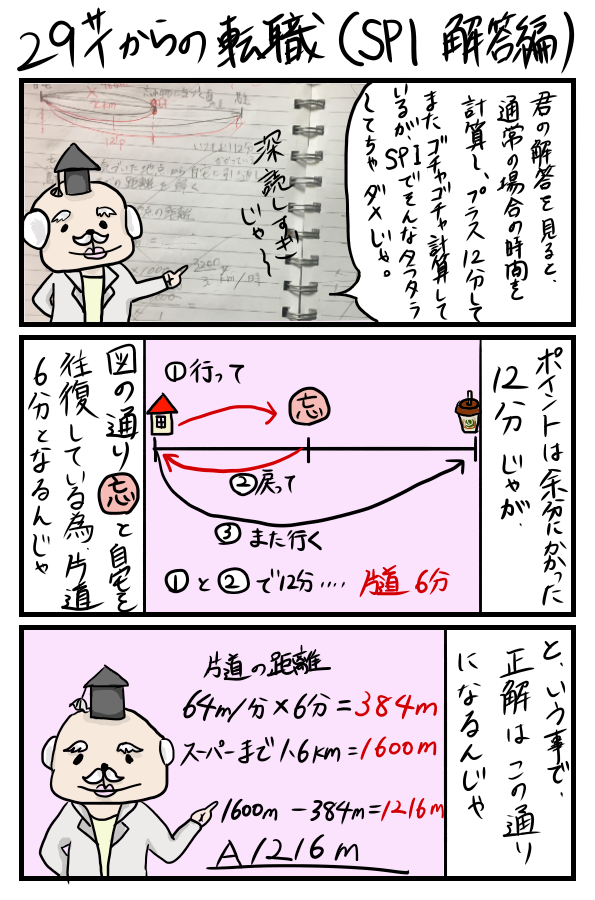 29才からの転職(SPI 解答編)
君の解答を見ると、
通常の場合の時間を
計算し、プラス12分して
またゴチャゴチャ計算して
いるがSPIでそんなタラタラ
してちゃダメじゃ。
深読しすぎ
じゃ〜
ポイントは余分にかかった
12分じゃが、
①行って
忘
②戻って
③また行く
①と②で12分…. 片道6分
図の通り忘と自宅を
往復している為、片道
6分となるんじゃ
と、いう事で、
正解はこの通り
になるんじゃ
片道の距離
64m/分×6分=384m
スーパーまで1.6km=1600m
1600m-384m=1216m
A 1216m